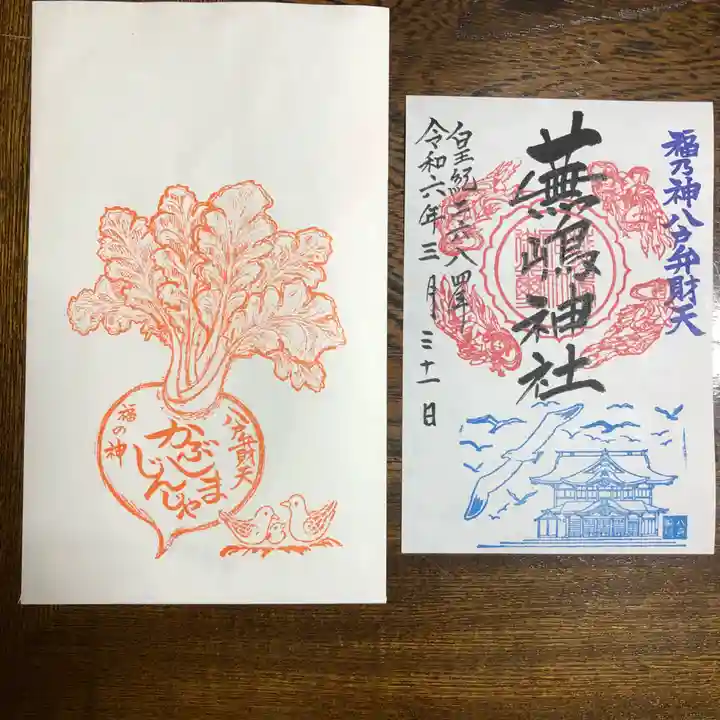 福の神
八戸弁財天
かぶしま
じんじゃ
福乃神八戸弁財天
蕪嶋神社
皇紀二六八四年
令和六年三月三十一日